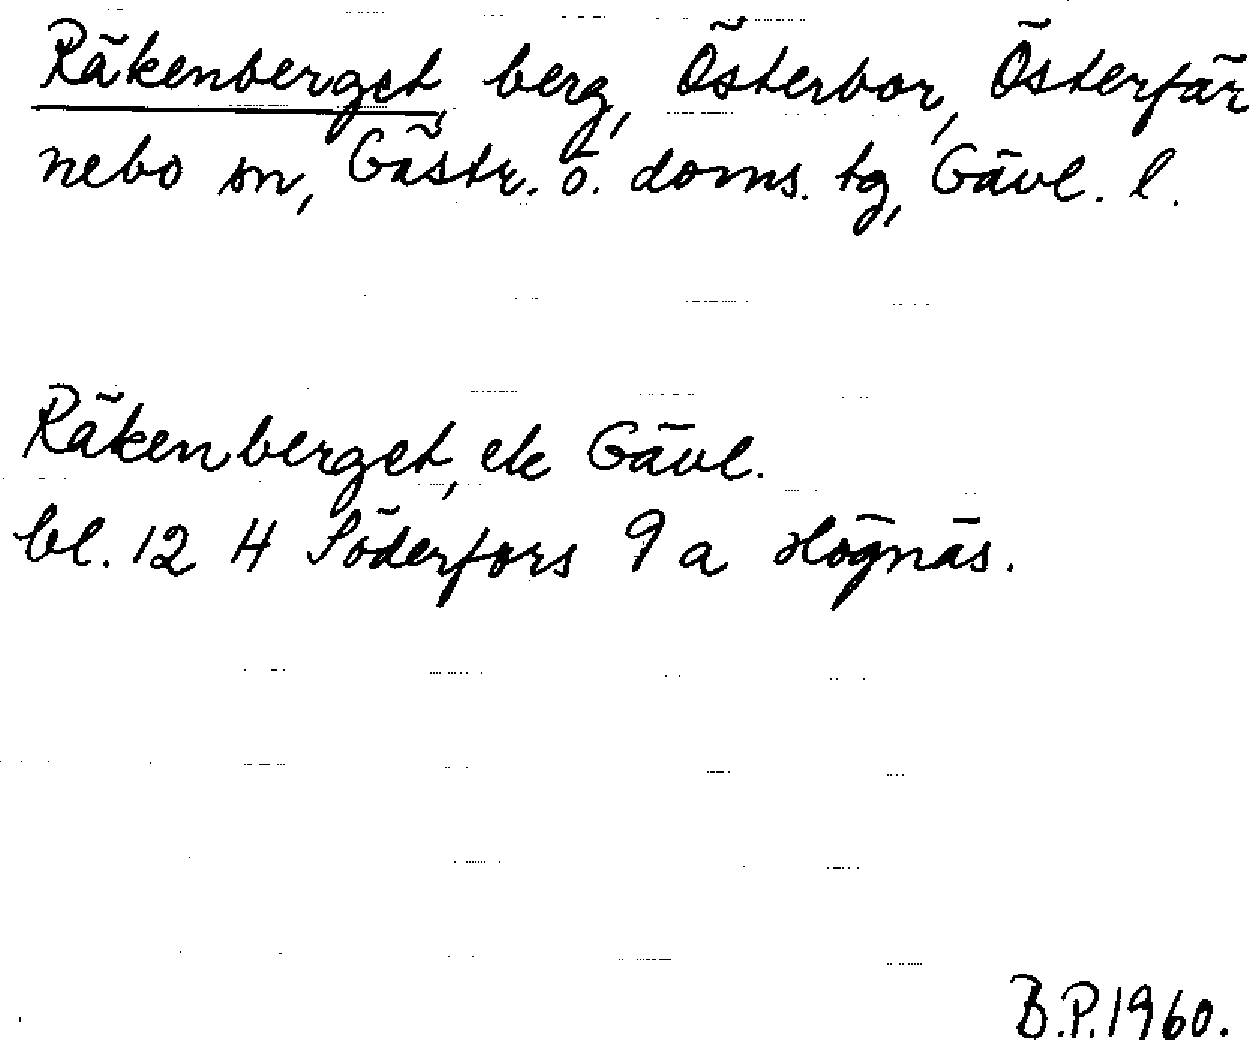 Räkenberget, berg, Österbor, Österfär
nebo sn, Gästr. ö. doms. tg, Gävl. l.
Räkenberget, ek Gävl.
bl. 12 H Söderfors 9 a Högnäs.
B.P. 1960.